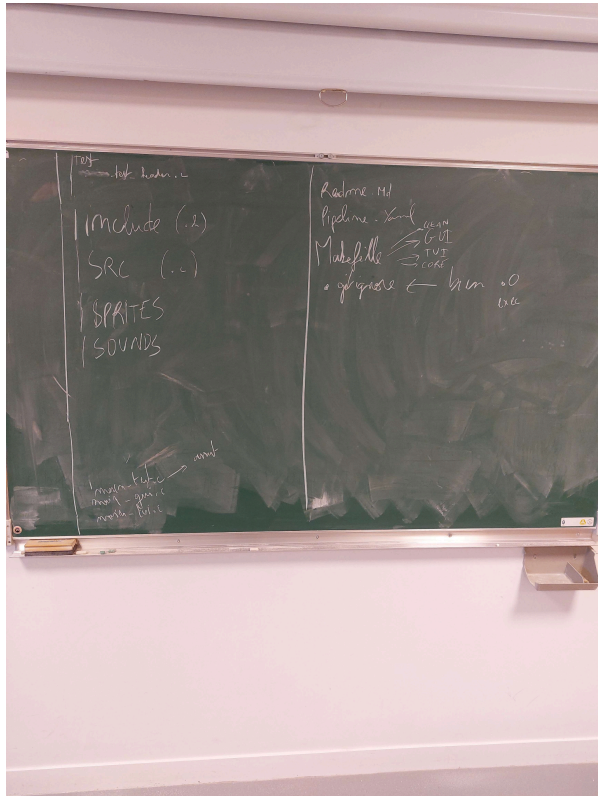 Test
test_header.c
include (.h)
SRC (.c)
SPRITES
SOUNDS
main_test.c
main_gui.c
main_tui.c
Readme Md
Pipeline.Yaml
Makefille
CLEAN
GUI
TUI
CORE
.gitignore ← bin .o
exec